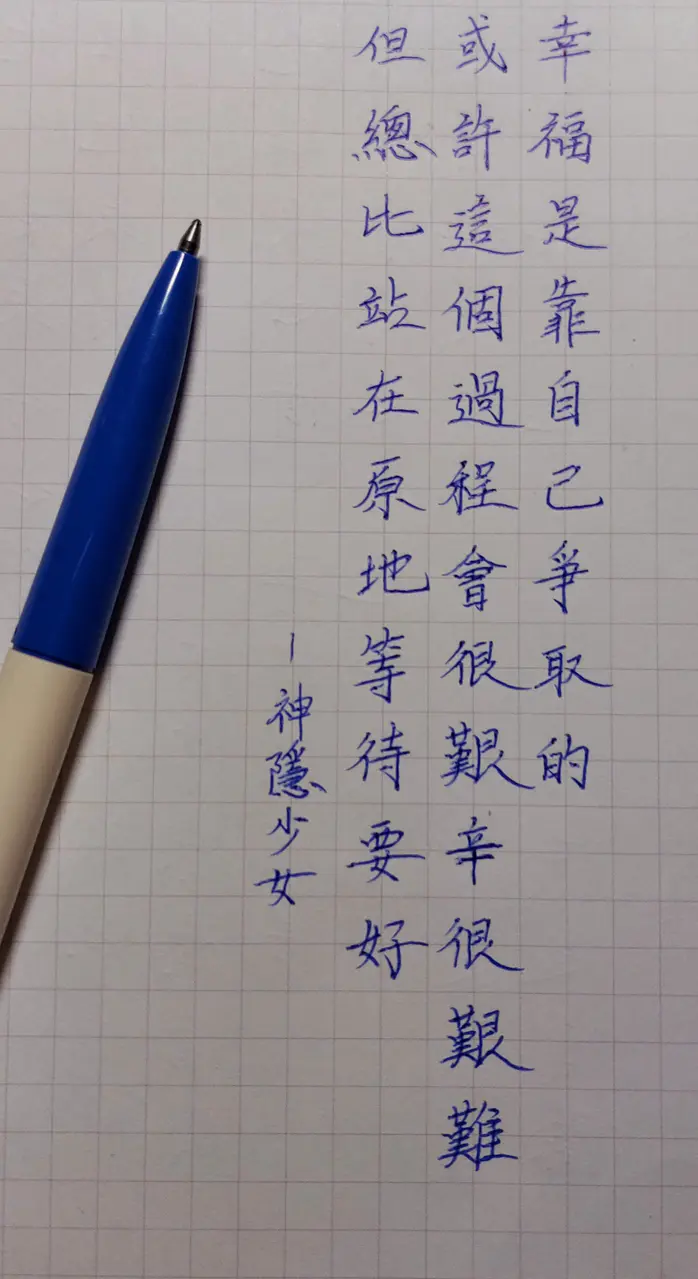 幸福是靠自己爭取的
或許這個過程會很艱辛很艱難
但總比站在原地等待要好
—神隱少女